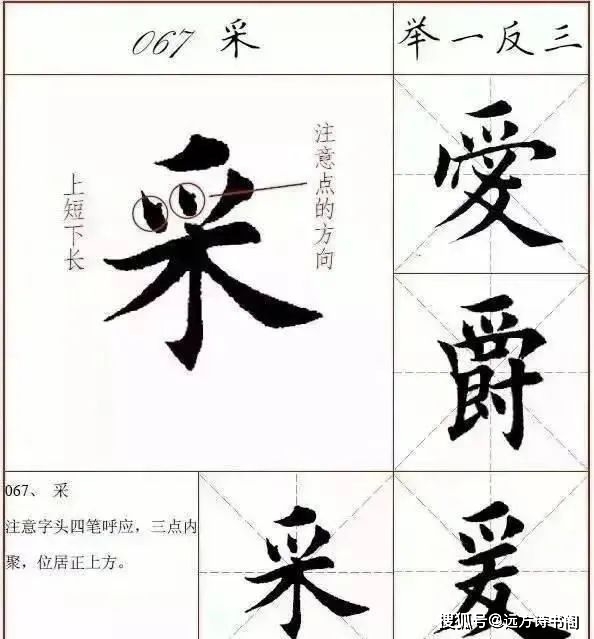 067 采
举一反三
采
注意点的方向
上短下长
愛
爵
067、 采
注意字头四笔呼应，三点内
聚，位居正上方。
采
爰
搜狐号@远方诗书阁